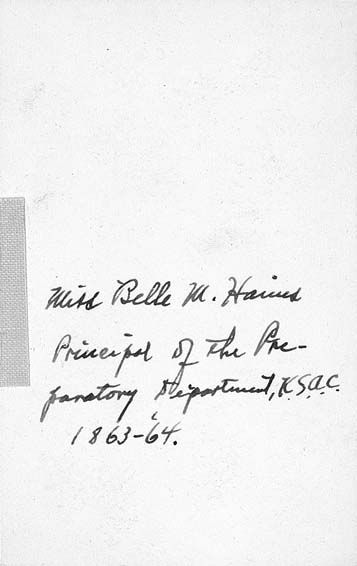 Miss Belle M. Haines
Principal of the Pre-
paratory Department, K.S.A.C.
1863-64.